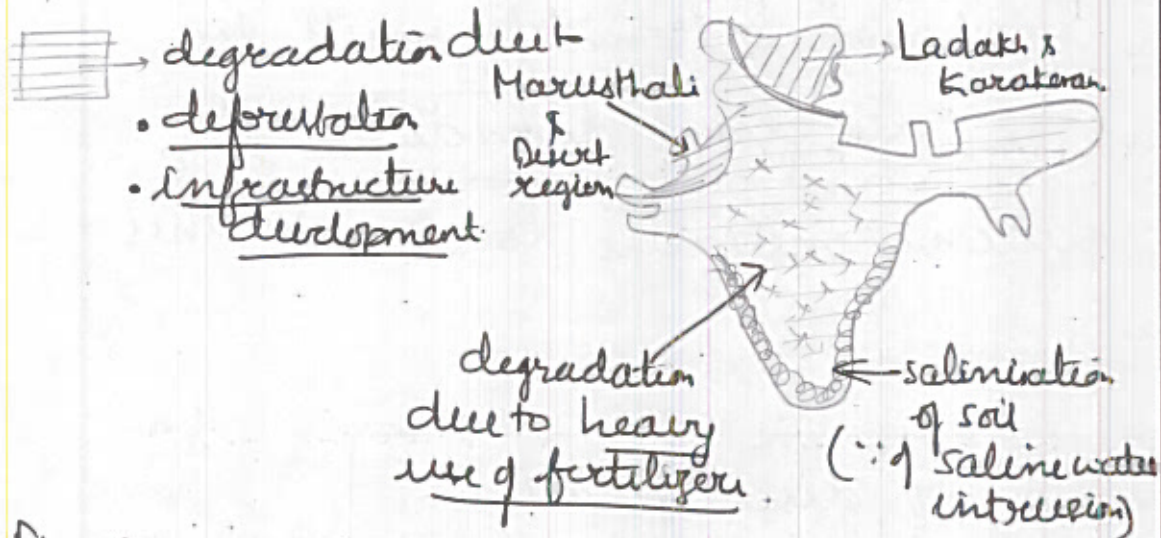 degradation due to
• deforestation
• infrastructure
development.
Marusthali
&
Desert
region
Ladakh &
Karakoram.
degradation
due to heavy
use of fertilizers.
salinisation
of soil
(∵ of saline water
intrusion)